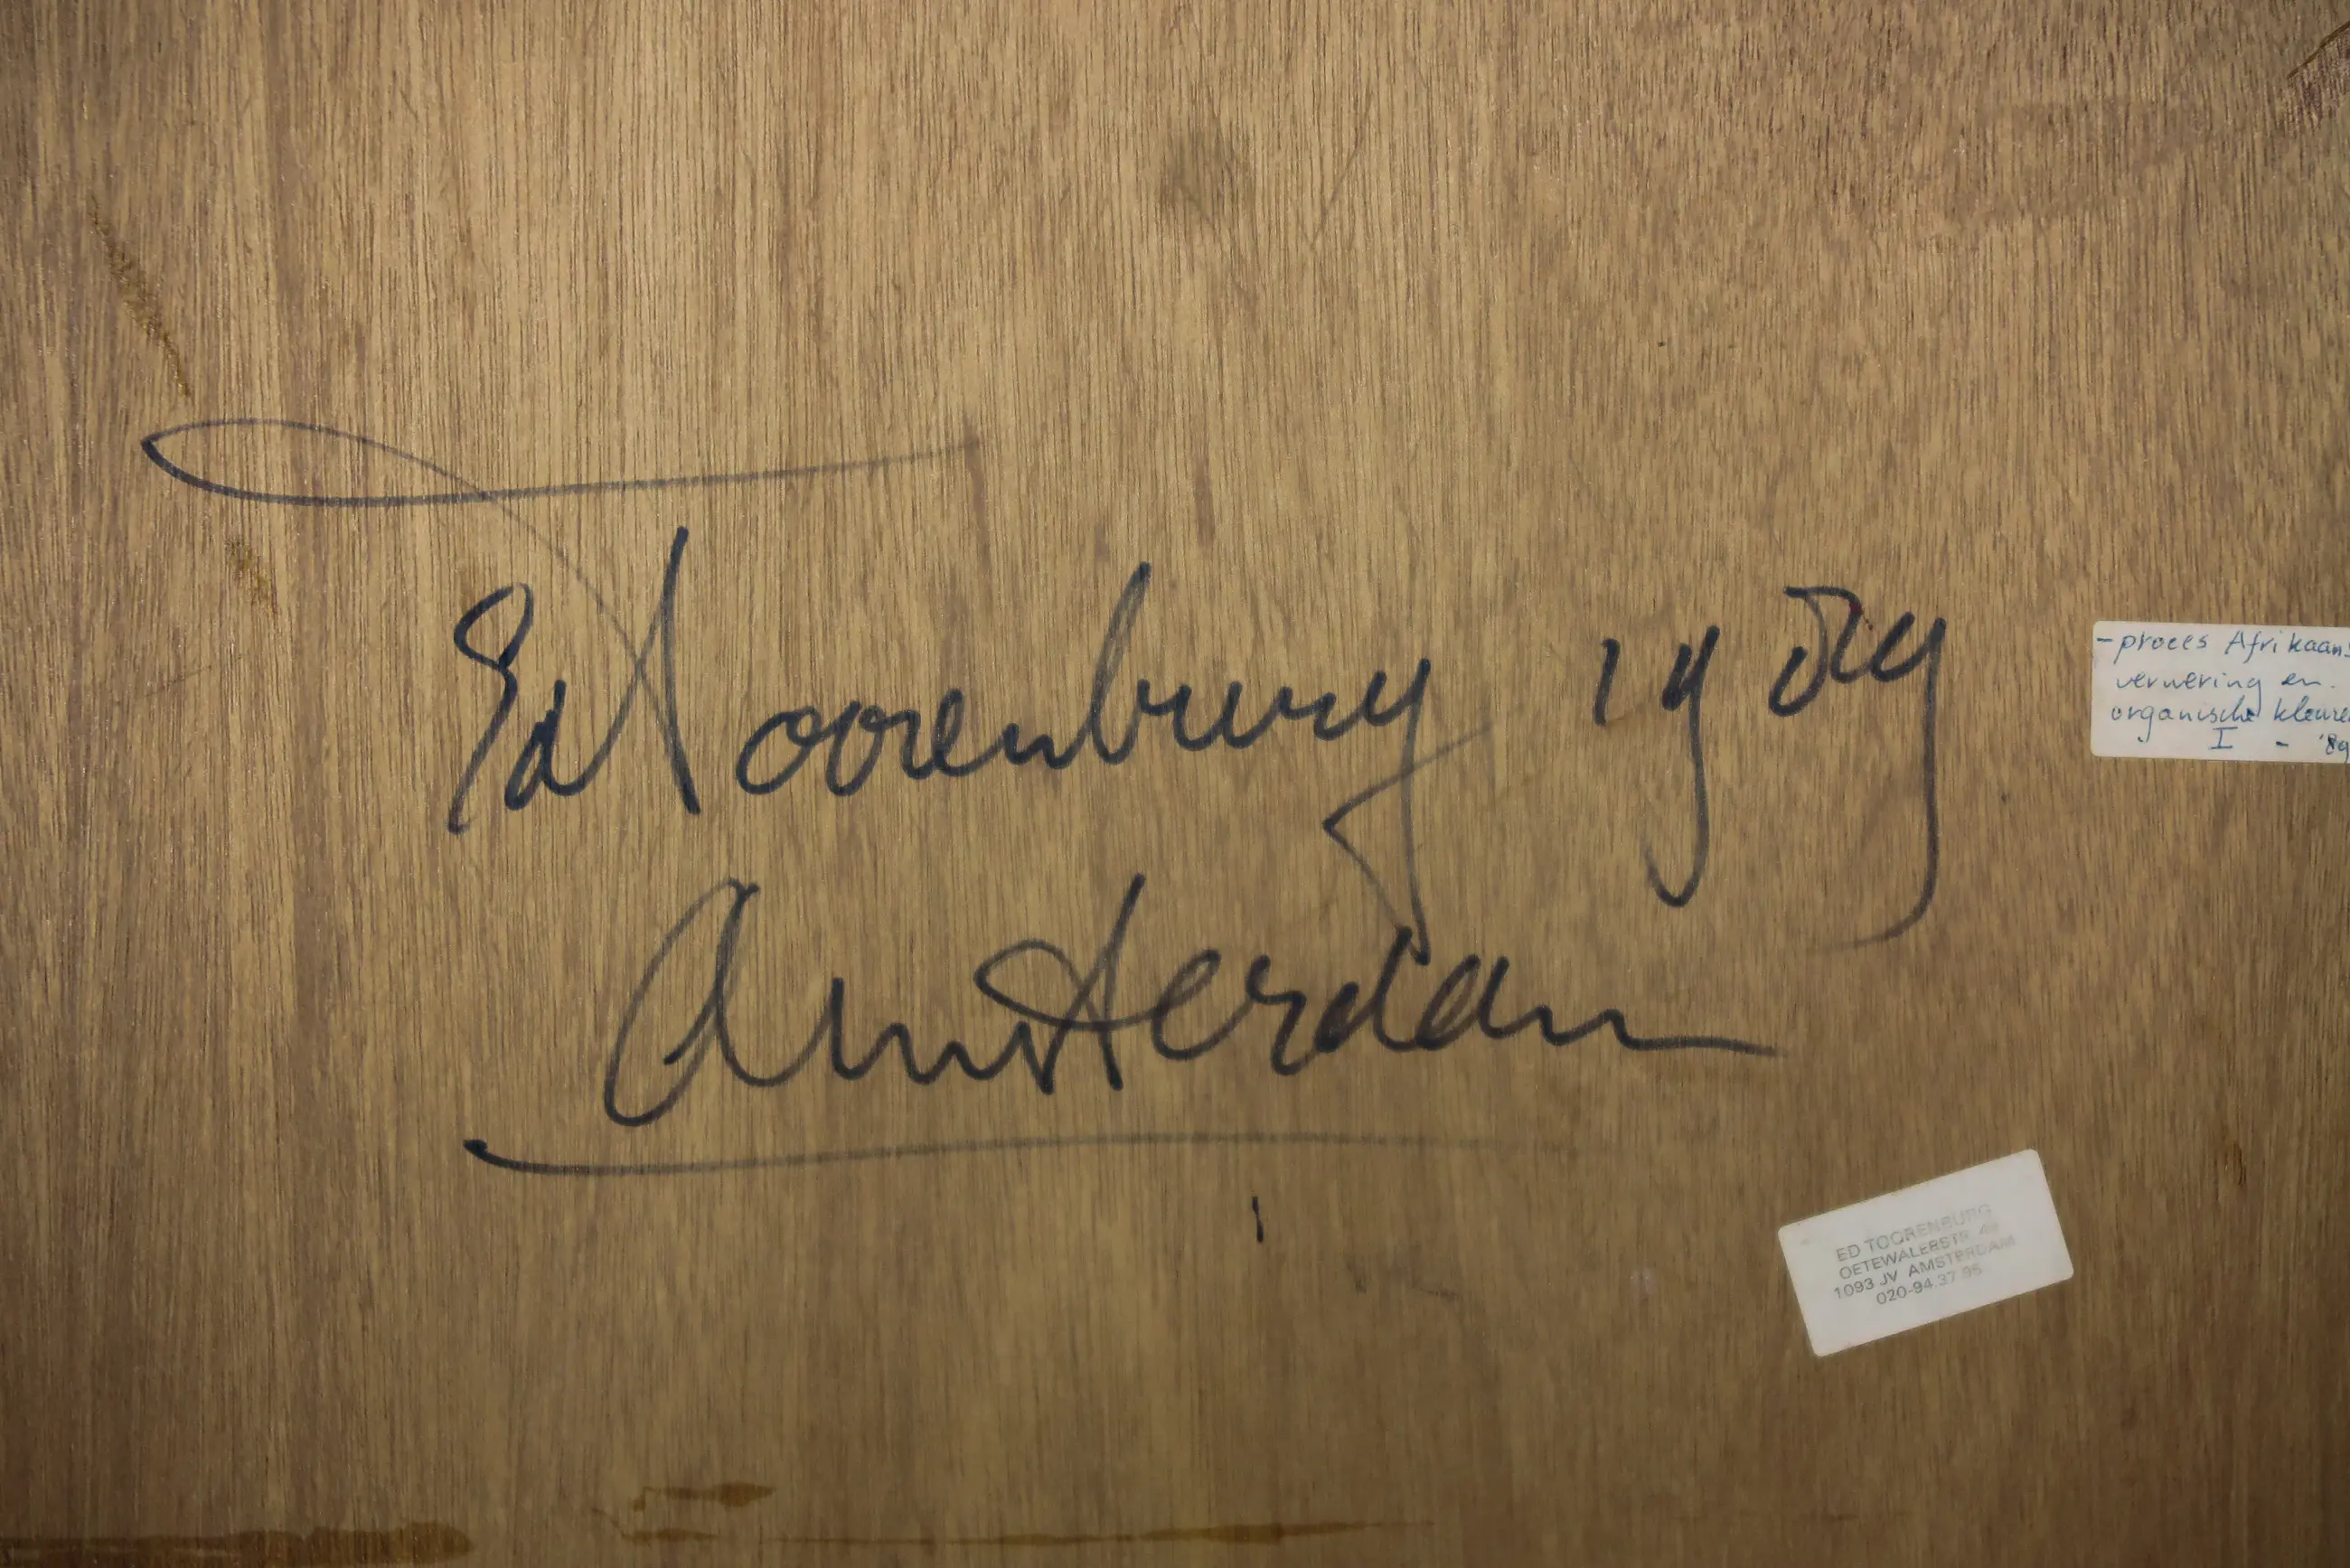 Ed Toorenburg 1989
Amsterdam
- proces Afrikaans
verwering en
organische kleure
I - '89
ED TOORENBURG
OETEWALERSTR
1093 JV AMSTERDAM
020-94.37.95